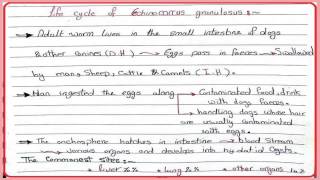 life cycle of Echinococcus granulosus :-
Adult worm lives in the small intestine of dogs
& other canines (D.H) → Eggs pass in faeces → Swallowed
by man, Sheep, Cattle & Camels (I.H).
Man ingested the eggs along → Contaminated food, drink
with dogs faeces.
→ handling dogs whose hair
are usually contaminated
with eggs.
The onchosphere hatches in intestine → blood stream
→ various organs and develops into hydatid cysts.
The Commonest sites:-
• liver % • lung % • other organs